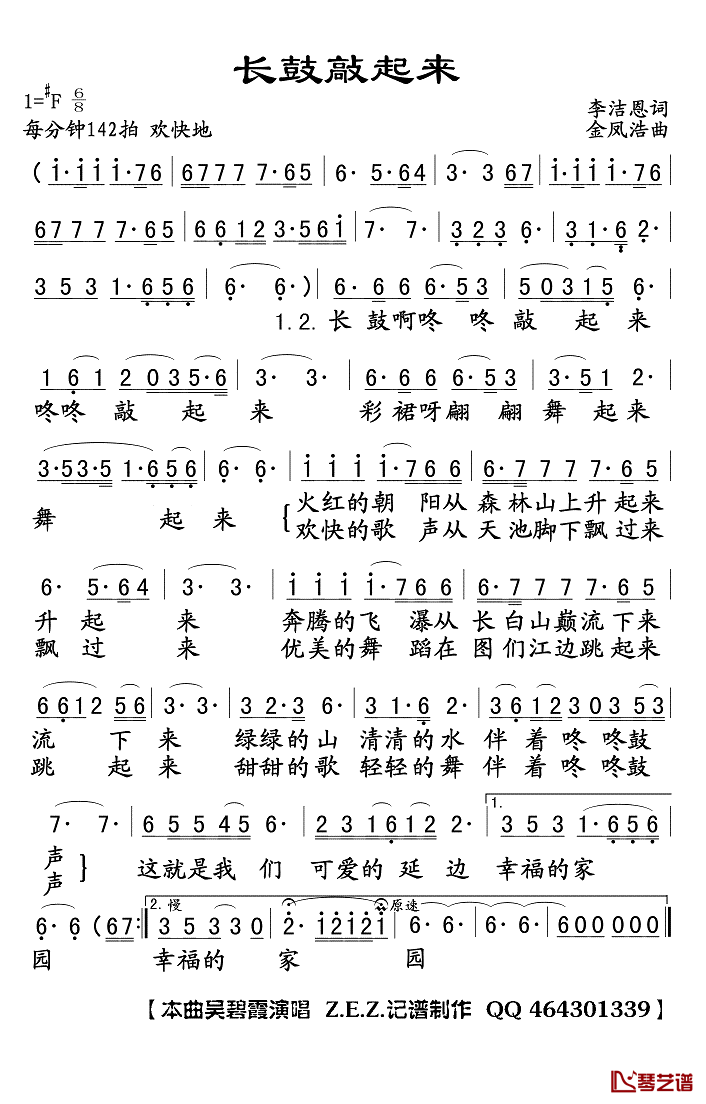 长鼓敲起来
1=#F 6/8
李洁恩词
每分钟142拍 欢快地
金凤浩曲
( i·i i i i·7 6 | 6 7 7 7 7·6 5 | 6· 5·6 4 | 3· 3 6 7 | i·i i i i·7 6 |
6 7 7 7 7·6 5 | 6 6 1 2 3·5 6 i | 7· 7· | 3 2 3 6· | 3 1·6 2· |
3 5 3 1·6 5 6 | 6· 6· ) | 6· 6 6 6·5 3 | 5 0 3 1 5 6· |
1.2. 长 鼓啊咚 咚 敲 起 来
1 6 1 2 0 3 5·6 | 3· 3· | 6· 6 6 6·5 3 | 3·5 1 2· |
咚咚 敲 起 来 彩 裙呀翩 翩 舞 起来
3·5 3·5 1·6 5 6 | 6· 6· | i i i i·7 6 6 | 6·7 7 7 7·6 5 |
火红的朝 阳从 森 林山上升 起来
舞 起 来
欢快的歌 声从 天 池脚下飘 过来
6· 5·6 4 | 3· 3· | i i i i·7 6 6 | 6·7 7 7 7·6 5 |
升 起 来 奔腾的飞 瀑从 长 白山巅流 下来
飘 过 来 优美的舞 蹈在 图 们江边跳 起来
6 6 1 2 5 6 | 3· 3· | 3 2·3 6· | 3 1·6 2· | 3 6 1 2 3 0 3 5 3 |
流 下 来 绿绿的山 清清的水 伴 着 咚 咚鼓
跳 起 来 甜甜的歌 轻轻的舞 伴 着 咚 咚鼓
1.
7· 7· | 6 5 5 4 5 6· | 2 3 1 6 1 2 | 2· 2· | 3 5 3 1·6 5 6 |
声
这就是我 们 可爱的 延 边 幸福的家
声
2. 慢 原速
6· 6 ( 6 7 :| 3 5 3 3 0 | 2· i 2 i 2 i | 6· 6· | 6· 6· | 6 0 0 0 0 0 |
园 幸福的 家 园
【本曲吴碧霞演唱 Z.E.Z.记谱制作 QQ 464301339】
琴艺谱